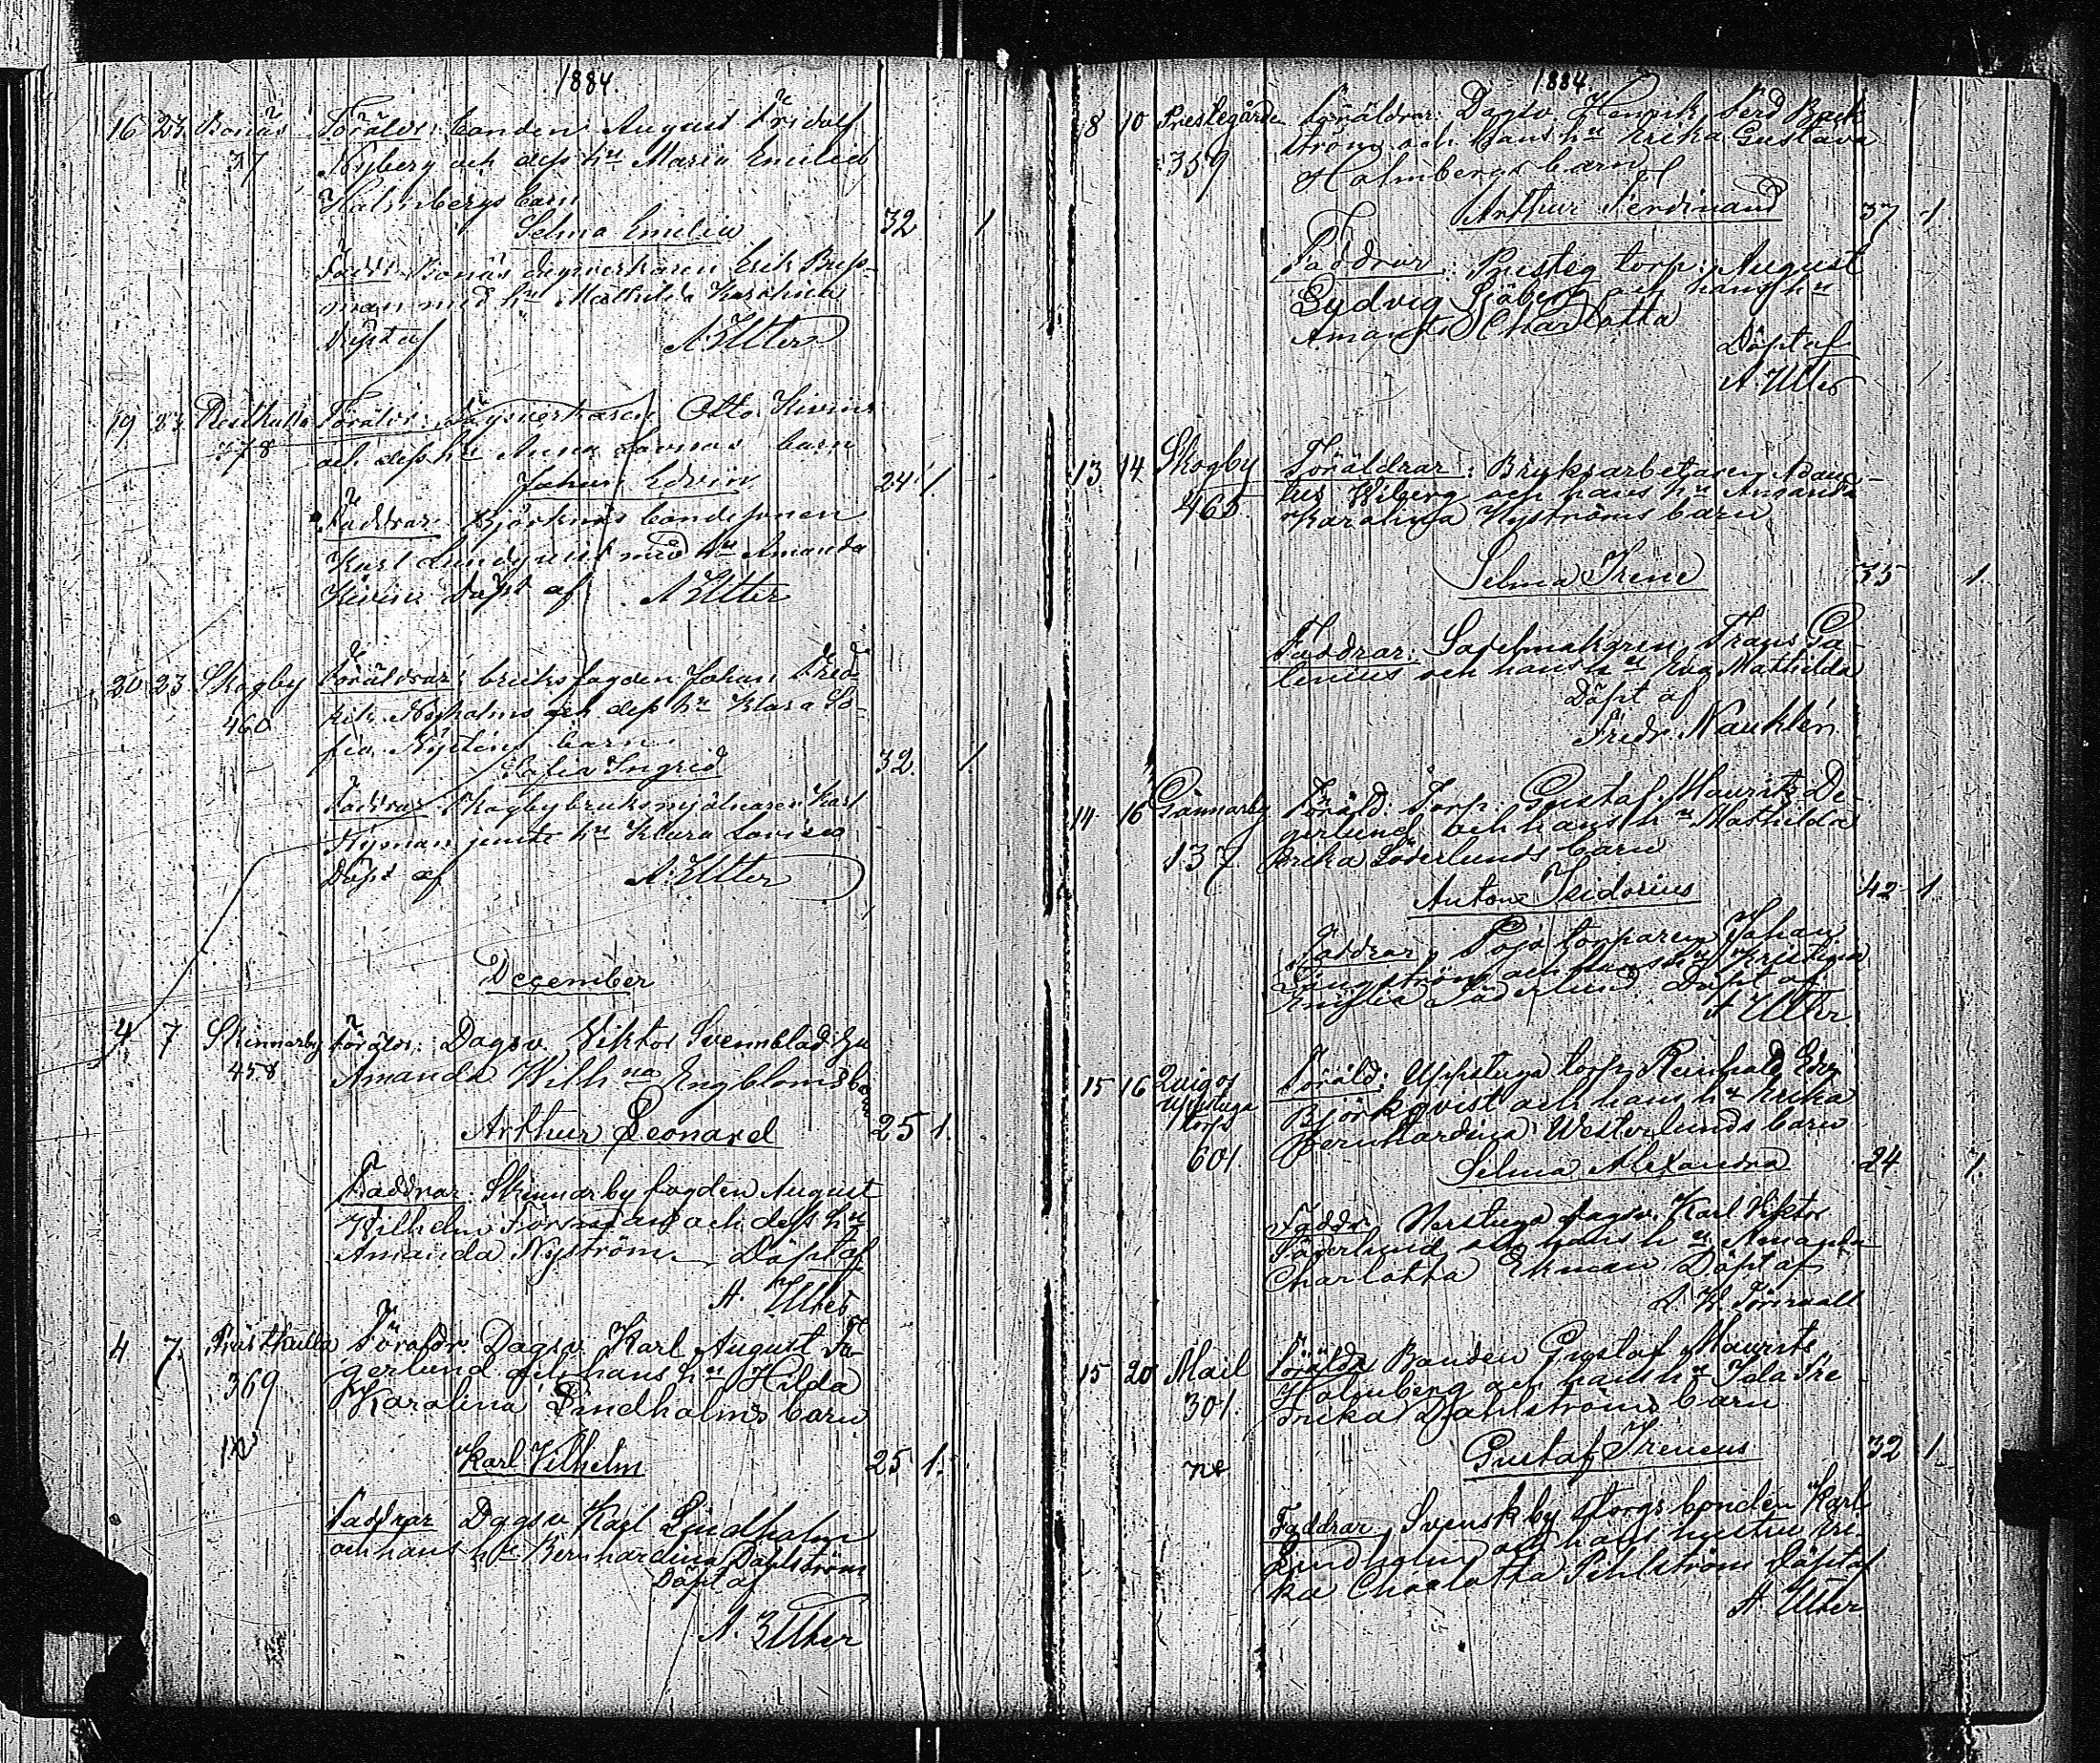 1884.
16 23 Bonäs Föräldr: bonden August Fridolf
37 Nyberg och dess hu Maria Emilia
Holmbergs barn
Selma Emilia 32 1
Fadd: Bonäs dagsverkaren Erik
man med hu Mathilda Karolina
Döpt af A. Utter
19 23 Föräldr: Dagsverkaren Otto
378 och dess hu Anna barn
Johan Edvin 24 1.
Faddrar Björknäs bondesonen
Karl Lundqvist med hu Amanda
Döpt af A Utter
20 23 Skogby Föräldrar: bruksfogden Johan Fred
460 rik och dess hu Klara So-
fia barn
Sofia Ingrid 32. 1.
Faddrar Skogby bruksmjölnaren Karl
Nyman jemte hu Klara Lovisa
Döpt af A. Utter
December
4 7 Skinnarby Föräldr: Dagsv. Viktor Svennblad
458 Amanda Wilhna Engbloms barn
Arthur Leonard 25 1.
Faddrar: Skinnarby fogden August
Wilhelm Forsman och dess hu
Amanda Nyström. Döpt af
A. Utter
4. 7. Prästkulla Föräldr Dagsv. Karl August Fa-
369 gerlund och hans hu Hilda
Karolina Lindholms barn
Karl Vilhelm 25 1.
Faddrar Dagsv Karl Lindholm
och hans hu Bernhardina Dahlström
Döpt af
A. Utter
1884.
8 10 Prestegården Föräldrar: Dagsv. Henrik Ferd Back
359 ström och hans hu Erika Gustava
Holmbergs barn
Arthur Ferdinand 37 1
Faddrar: Presteg torp: August
Ludvig Sjöberg och hans hu
Amanda Charlotta
Döpt af
A. Utter
13 14 Skogby Föräldrar: Bruksarbetaren
465. Wiberg och hans hu Amanda
Karolina Nyströms barn
Selma Irene 35 1
Faddrar: Sadelmakaren Frans Ga-
lenius och hans hu Eva Mathilda
Döpt af
Fredr. Nauklér.
14 16 Gännarby Föräld: Torp. Gustaf Maurits De-
137 gerlund och hans hu Mathilda
Erika Söderlunds barn
Anton Isidorius 42 1.
Faddrar: Pojo torparen Johan
Ljungström och hans hu Kristina
Emilia Söderlund Döpt af
A Utter.
15 16 Qvigos Föräld: Uppstuga torp. Reinhold Edv.
Uppstuga Björkqvist och hans hu Erika
torp Bernhardina Westerlunds barn
601. Selma Alexandra 24 1.
Faddr. Nerstuga dagsv. Karl Viktor
Söderlund och hans hu Amanda
Charlotta Ekman Döpt af
A. W. Törnvall
15 20 Mail Föräldr Bonden Gustaf Maurits
301. Holmberg och hans hu Ida Fre
drika Dahlströms barn
Gustaf Ireneus 32 1
Faddrar Svenskby storgs bonden Karl
Lindholm och hans hustru Eri
ka Charlotta Pehlström Döpt af
A Utter